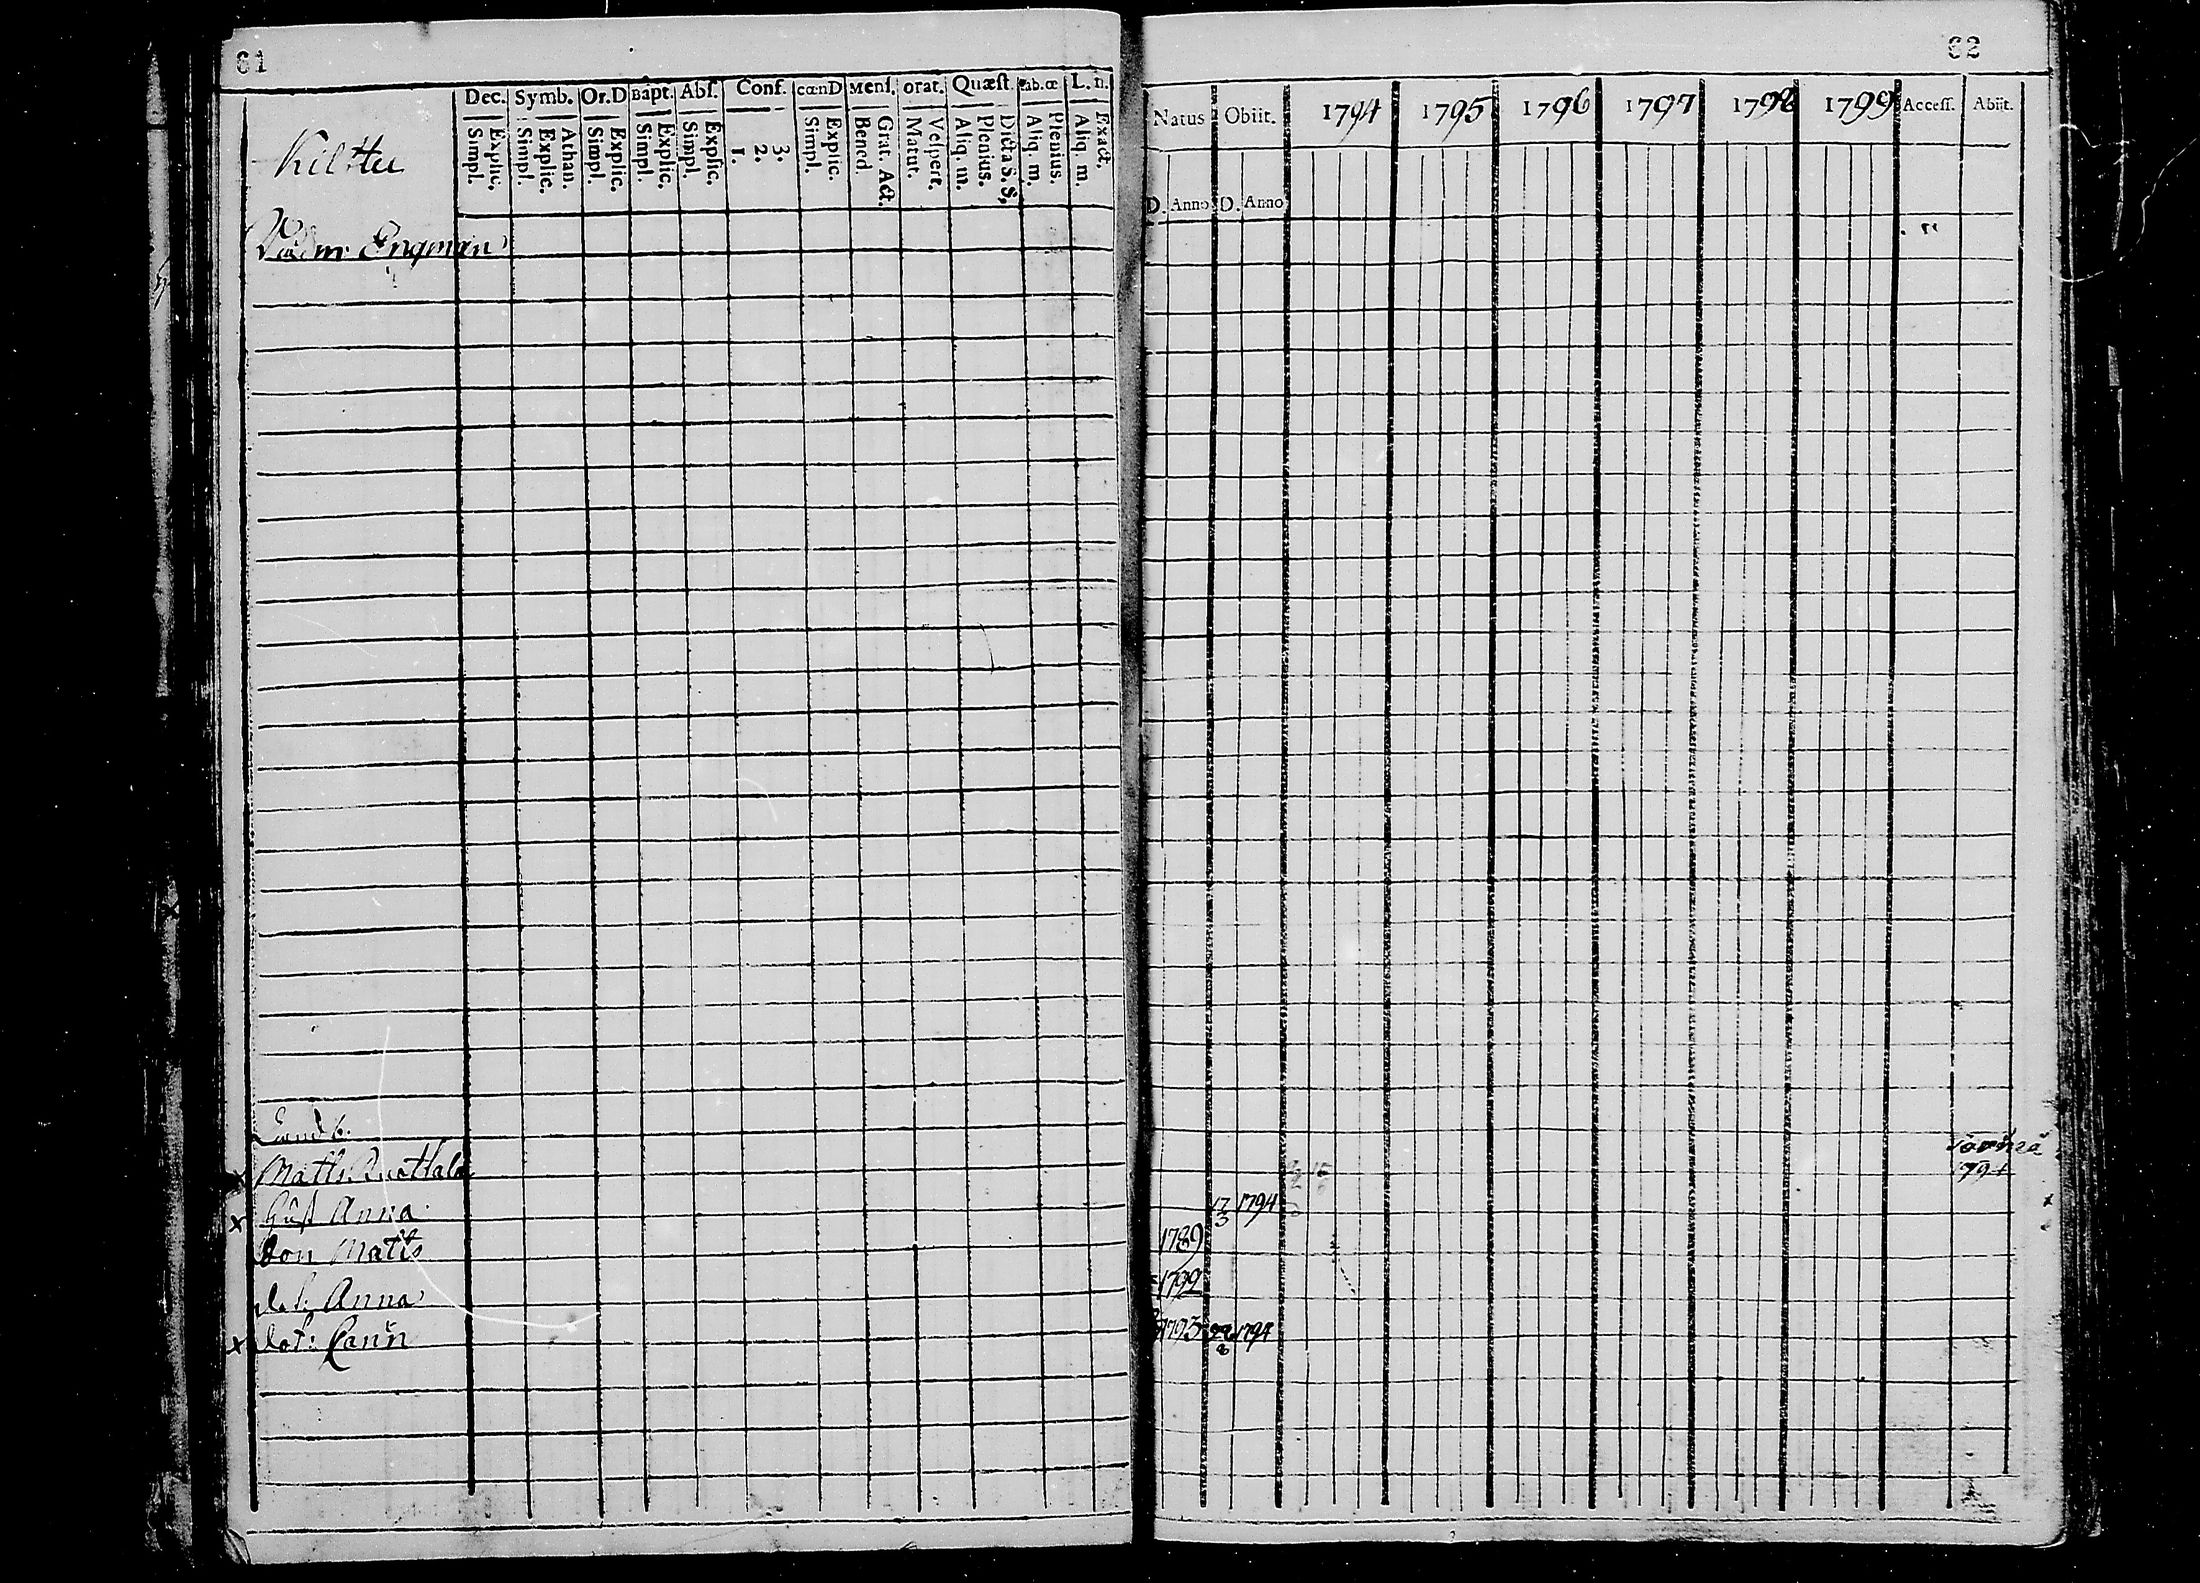 61
Dec. Symb. Or.D Bapt. Abs. Conf. cœnD Mens. orat. Quæst. Tab.œ L. n.
Simpl. Explic. Simpl. Explic. Athan. Simpl. Explic. Simpl. Explic. Simpl. Explic. 1. 2. 3. Simpl. Explic. Bened. Grat. Act. Matut. Vespert. Aliq. m. Plenius. Dicta S. S. Aliq. m. Plenius. Aliq. m. Exact.
Engman
Landb.
x Matts
x Hust Anna
Son Matts
dot: Anna
x dot: Carin
62
Natus Obiit. 1794 1795 1796 1797 1798 1799 Access. Abiit.
D. Anno D. Anno
1794
17/3 1794
1789
1792
1793 22/8 1794